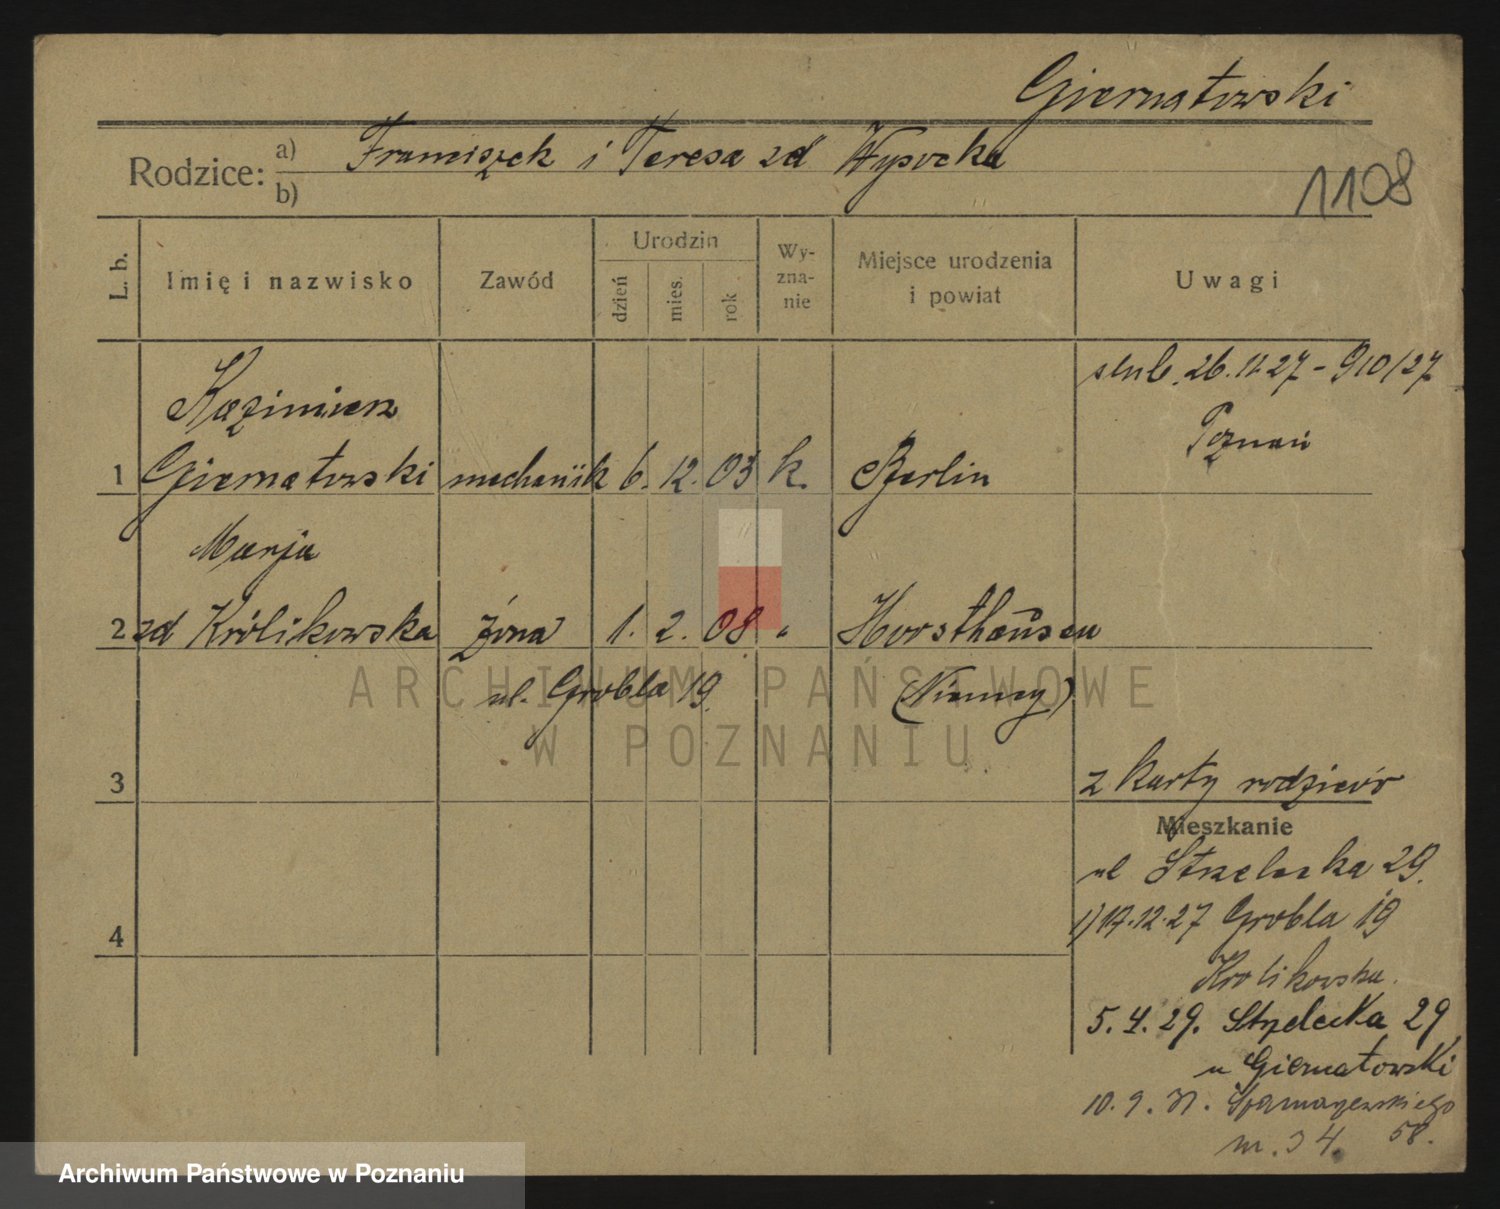 Giernatowski
Rodzice: a) Franciszek i Teresa zd Wysocka
b)
1108
L. b.
Imię i nazwisko
Zawód
Urodzin
dzień
mies.
rok
Wy-
zna-
nie
Miejsce urodzenia
i powiat
Uwagi
ślub. 26.11.27 - 910/27
Poznań
Kazimierz
1 Giernatowski mechanik 6. 12. 03 k. Berlin
Marja
2 zd Królikowska żona 1. 2. 08 " Horsthausen
ul. Grobla 19. (Niemcy)
ARCHIWUM PAŃSTWOWE
W POZNANIU
3
z karty rodziców
Mieszkanie
ul Strzelecka 29.
1) 17.12.27 Grobla 19
4
Krolikowska.
5.4.29. Strzelecka 29
u Giernatowski
10.9.31.
nr. 34. 58.
Archiwum Państwowe w Poznaniu